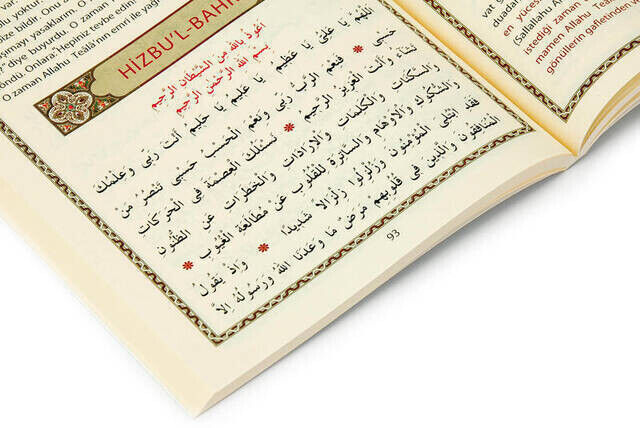 size bildir. Onl
ışmayı yasaklarım. Onu
diye buyurdu. O zaman Al
Onlara: Hepiniz tevbe edin
O zaman Allahu Teâlâ'nın emri ile
HİZBU'L-BAHR
اَعُوذُ بِاللّٰهِ مِنَ الشَّيْطَانِ الرَّجِيمِ
بِسْمِ اللّٰهِ الرَّحْمٰنِ الرَّحِيمِ
اَللّٰهُمَّ يَا عَلِيُّ يَا عَظِيمُ يَا عَلِيمُ يَا حَلِيمُ اَنْتَ رَبِّى وَعِلْمُكَ
حَسْبِى ❋ فَنِعْمَ الرَّبُّ رَبِّى وَنِعْمَ الْحَسْبُ حَسْبِى تَنْصُرُ مَنْ
تَشَاءُ وَاَنْتَ الْعَزِيزُ الرَّحِيمُ ❋ نَسْئَلُكَ الْعِصْمَةَ فِى الْحَرَكَاتِ
وَالسَّكَنَاتِ وَالْكَلِمَاتِ وَالْاِرَادَاتِ وَالْخَطَرَاتِ عَنِ الظُّنُونِ
وَالشُّكُوكِ وَالْاَوْهَامِ السَّاتِرَةِ لِلْقُلُوبِ عَنْ مُطَالَعَةِ الْغُيُوبِ ❋
فَقَدِ ابْتُلِىَ الْمُؤْمِنُونَ وَزُلْزِلُوا زِلْزَالًا شَدِيدًا ❋ وَاِذْ يَقُولُ
الْمُنَافِقُونَ وَالَّذِينَ فِى قُلُوبِهِمْ مَرَضٌ مَا وَعَدَنَا اللّٰهُ وَرَسُولُهُ اِلَّا
93
vat g
en yüces
duadar
(Sallallahu A
istediği zaman
mamen Allahu Te
gönüllerin gafletinden